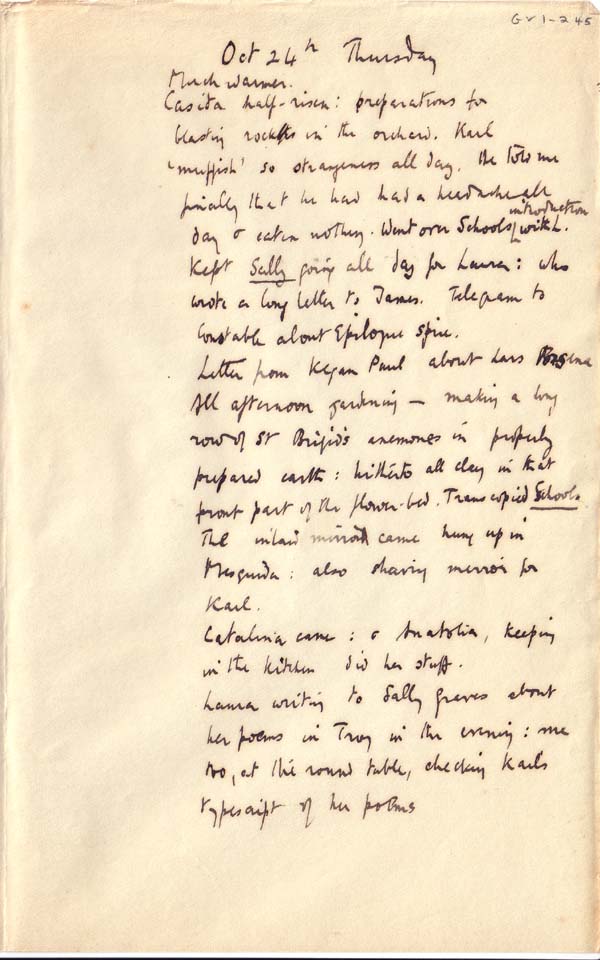 GV1-245
Oct 24th Thursday
Much warmer.
Casita half-risen: preparations for
blasting rocks in the orchard. Karl
'muffish' so strangeness all day. He told me
finally that he had had a headache all
day & eaten nothing. Went over Schools introduction with L.
Kept Sally going all day for Laura: who
wrote a long letter to James. Telegram to
Constable about Epilogue spine.
Letter from Kegan Paul about Lars Porsena
All afternoon gardening — making a long
row of St Brigid's anemones in properly
prepared earth: hitherto all clay in that
front part of the flower-bed. Trans copied Schools
The inlaid mirror came hung up in
Mesguida: also shaving mirror for
Karl.
Catalina came: & Anatolia, keeping
in the kitchen did her stuff.
Laura writing to Sally Graves about
her poems in Troy in the evening: me
too, at the round table, checking Karl's
typescript of her poems